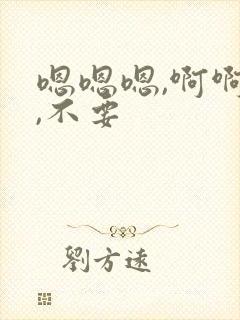 嗯嗯嗯,啊啊
,不要
劉方遠